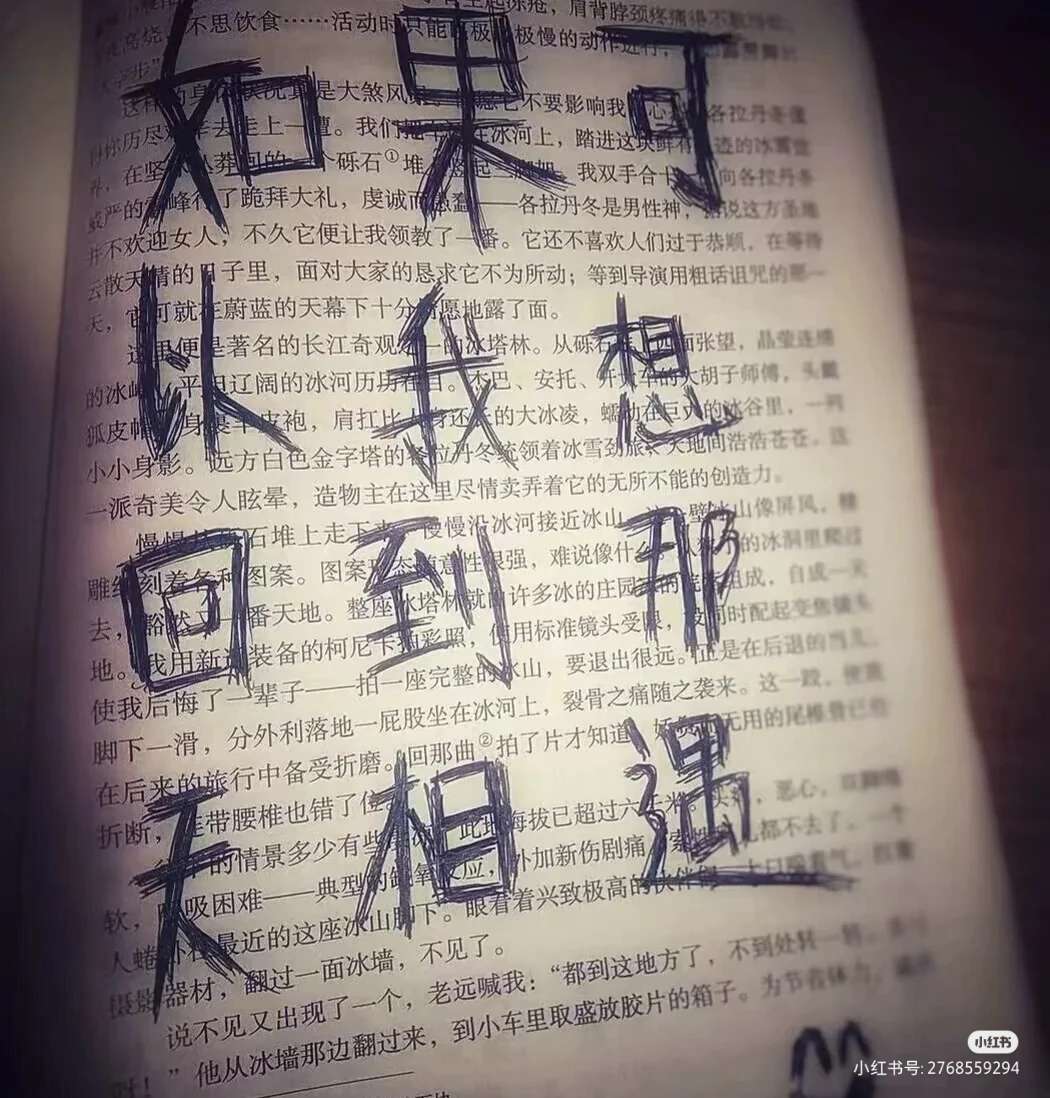 如果可
以我想
回到那
天相遇
不思饮食……活动时只能
是大煞风
不要影响我
历尽
去走上一遭。我们
在冰河上，踏进这块鲜有
迹的冰雪世
界，在坚
莽
的一个砾石①堆
我双手合十
向各拉丹冬
威严的
峰行了跪拜大礼，虔诚而愚蠢——各拉丹冬是男性神，据说这方圣地
并不欢迎女人，不久它便让我领教了一番。它还不喜欢人们过于恭顺，在等待
云散天晴的日子里，面对大家的恳求它不为所动；等到导演用粗话诅咒的那一
天，它可就在蔚蓝的天幕下十分情愿地露了面。
这里便是著名的长江奇观之一的冰塔林。从砾石
四面张望，晶莹连绵
的冰峰、平坦辽阔的冰河历历在目。杰巴、安托、开大车的大胡子师傅，头戴
狐皮帽，身裹羊皮袍，肩扛比人身还长的大冰凌，蠕动在巨大的冰谷里，一列
小小身影。远方白色金字塔的各拉丹冬统领着冰雪劲旅，天地间浩浩苍苍。这
一派奇美令人眩晕，造物主在这里尽情卖弄着它的无所不能的创造力。
慢慢从
石堆上走下来，慢慢沿冰河接近冰山。
壁冰山像屏风，精
雕细刻着各种图案。图案形态随意性很强，难说像什么。从
的冰洞里爬过
去，豁然又一番天地。整座冰塔林就由许多冰的庄园
组成，自成一天
地。我用新
装备的柯尼卡拍彩照，使用标准镜头受限，没同时配起变焦镜头
使我后悔了一辈子——拍一座完整的冰山，要退出很远。正是在后退的当儿，
脚下一滑，分外利落地一屁股坐在冰河上，裂骨之痛随之袭来。这一跤，使我
在后来的旅行中备受折磨。回那曲②拍了片才知道，妖
无用的尾椎骨已经
折断，连带腰椎也错了位。
的情景多少有些
此地海拔已超过六千米。头
，恶心，双脚绵
软，呼吸困难——典型的缺氧反应，外加新伤剧痛，索性
儿都不去了。一个
人蜷卧在最近的这座冰山脚下。眼看着兴致极高的伙伴们
大口喘着气，扛着
摄影器材，翻过一面冰墙，不见了。
说不见又出现了一个，老远喊我：“都到这地方了，不到处转一转，
”他从冰墙那边翻过来，到小车里取盛放胶片的箱子。为节省体力，
小红书
小红书号: 2768559294